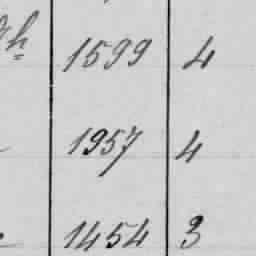 h 1599 4
1957 4
1454 3